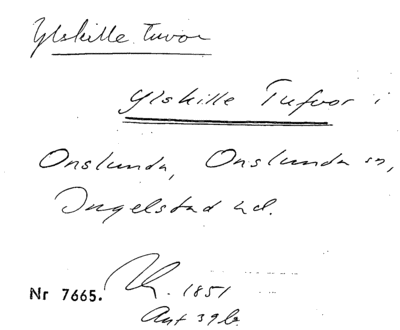 Ylskille Tuvor
Ylskille Tufvor i
Onslunda, Onslunda sn,
Ingelstad hd.
Nr 7665. 1851
Ant 39 b.